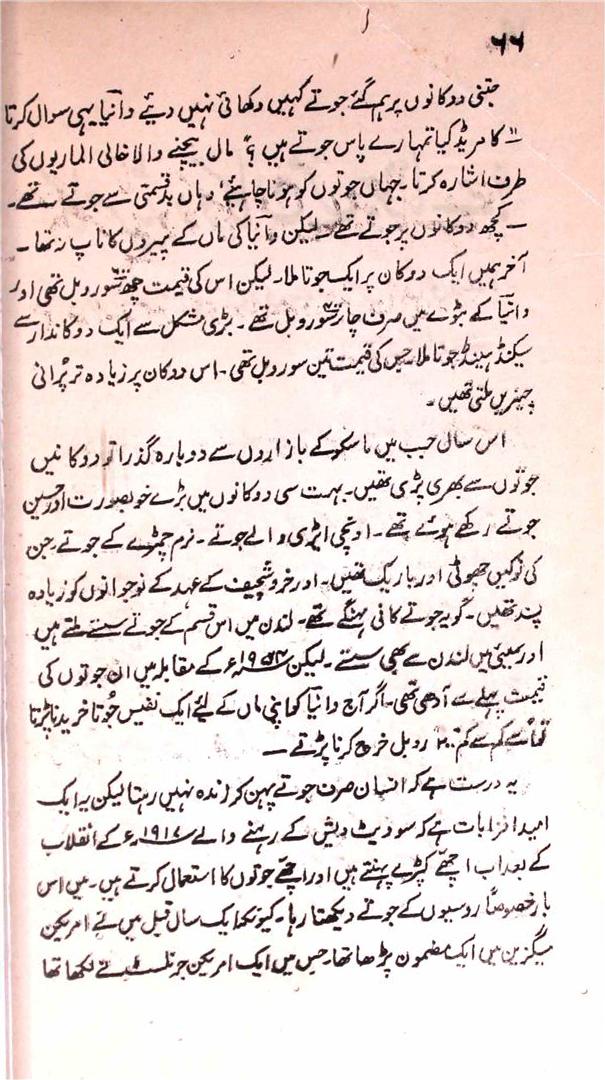 ۶۶
جتنی دوکانوں پر ہم گئے جوتے کہیں دکھائی نہیں دیئے وانیا یہی سوال کرتا
"کامریڈ کیا تمہارے پاس جوتے ہیں؟" مال بیچنے والا خالی الماریوں کی
طرف اشارہ کرتا۔ جہاں جوتوں کو ہونا چاہئے وہاں بدقسمتی سے جوتے نہ تھے۔
— کچھ دوکانوں پر جوتے تھے۔ لیکن وانیا کی ماں کے پیروں کا ناپ نہ تھا۔
آخر ہمیں ایک دوکان پر ایک جوتا ملا۔ لیکن اس کی قیمت چھ سو روبل تھی اور
وانیا کے بٹوے میں صرف چار سو روبل تھے۔ بڑی مشکل سے ایک دوکاندار سے
سیکنڈ ہینڈ جوتا ملا۔ جس کی قیمت تین سو روبل تھی۔ اس دوکان پر زیادہ تر پُرانی
چیزیں ملتی تھیں۔
اس سال جب میں ماسکو کے بازاروں سے دوبارہ گذرا تو دوکانیں
جوتوں سے بھری پڑی تھیں۔ بہت سی دوکانوں میں بڑے خوبصورت اور حسین
جوتے رکھے ہوئے تھے۔ اونچی ایڑی والے جوتے۔ نرم چمڑے کے جوتے۔ جن
کی نوکیں چھوٹی اور باریک تھیں۔ اور خروشچیف کے عہد کے نوجوانوں کو زیادہ
پسند تھیں۔ گو یہ جوتے کافی مہنگے تھے۔ لندن میں اس قسم کے جوتے سستے ملتے ہیں
اور بمبئی میں لندن سے بھی سستے۔ لیکن ۱۹۵۴ء کے مقابلہ میں ان جوتوں کی
قیمت پہلے سے آدھی تھی۔ اگر آج وانیا کو اپنی ماں کے لئے ایک نفیس جُوتا خریدنا پڑتا
تو اُسے کم سے کم ۲۰۰ روبل خرچ کرنا پڑتے —
یہ درست ہے کہ انسان صرف جوتے پہن کر زندہ نہیں رہتا لیکن یہ ایک
امید افزا بات ہے کہ سوویٹ دیش کے رہنے والے ۱۹۱۷ء کے انقلاب
کے بعد اب اچھے کپڑے پہنتے ہیں اور اچھے جوتوں کا استعمال کرتے ہیں۔ میں اس
بار خصوصاً روسیوں کے جوتے دیکھتا رہا۔ کیونکہ ایک سال قبل میں نے امریکن
میگزین میں ایک مضمون پڑھا تھا۔ جس میں ایک امریکن جرنلسٹ نے لکھا تھا